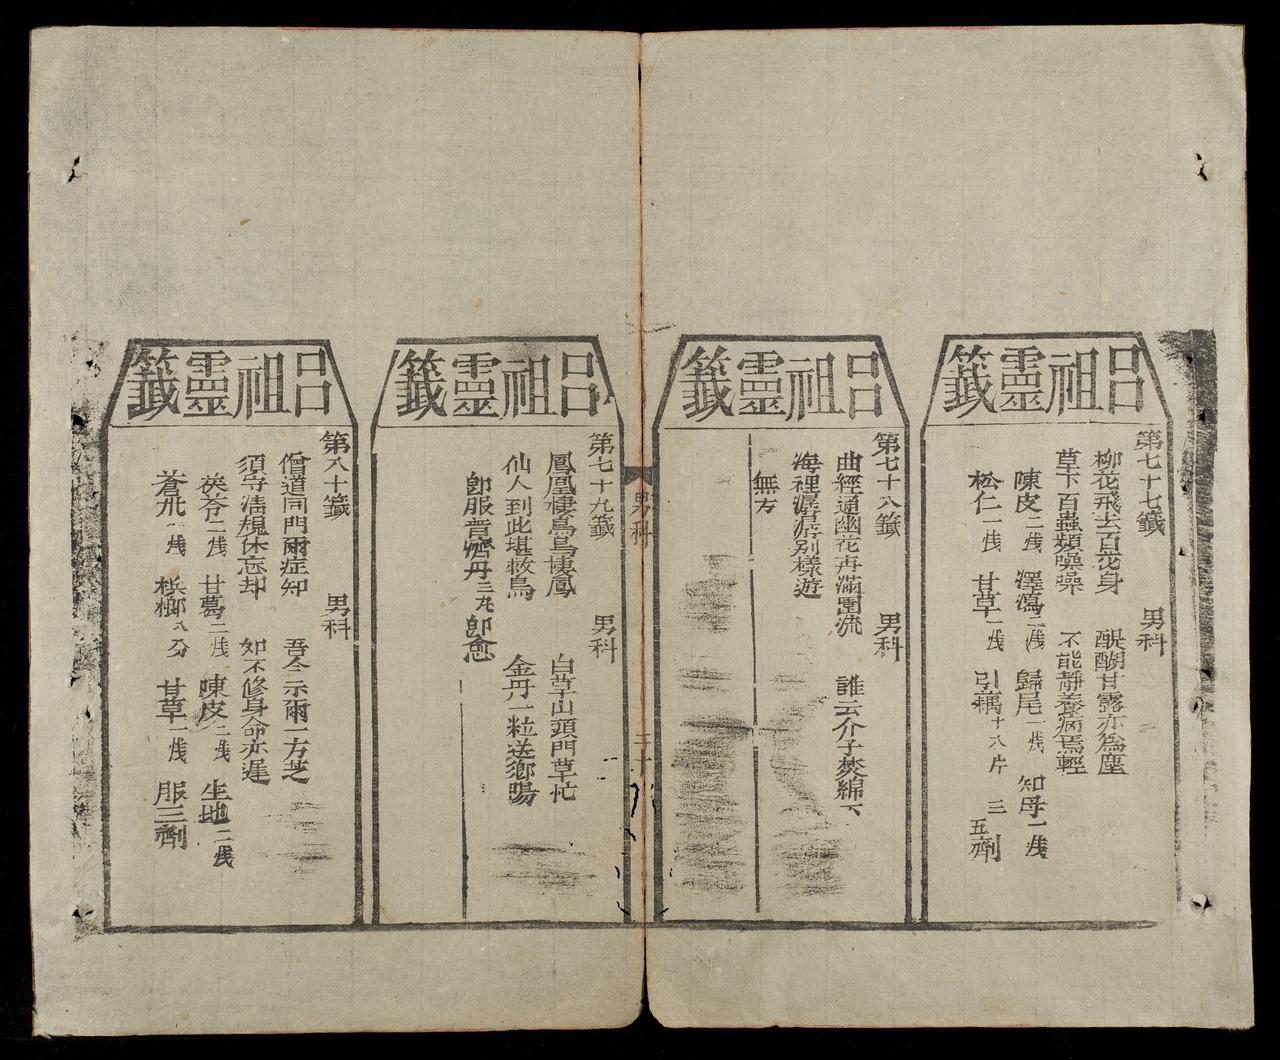 呂祖靈籤
第七十七籤 男科
柳花飛去百花身 醍醐甘露亦為塵
草下百蟲頻噪噪 不能靜養病焉輕
陳皮二戔 澤瀉二戔 歸尾一戔 知母一戔
松仁一戔 甘草一戔 引藕十八片 三五劑
呂祖靈籤
第七十八籤 男科
曲經通幽花再滿園流 誰云介子焚綿下
海裡潺潺別樣遊
無方
男科
二十
呂祖靈籤
第七十九籤 男科
鳳凰棲鳥鳥棲鳳 白草山頭門草忙
仙人到此堪救鳥 金丹一粒送鄉陽
即服普濟丹三丸即愈
呂祖靈籤
第八十籤 男科
僧道同門爾症知 吾今示爾一方芝
須守清規休忘却 如不修身命亦遲
茯苓二戔 甘葛二戔 陳皮二戔 生地二戔
蒼朮一戔 檳榔八分 甘草一戔 服三劑